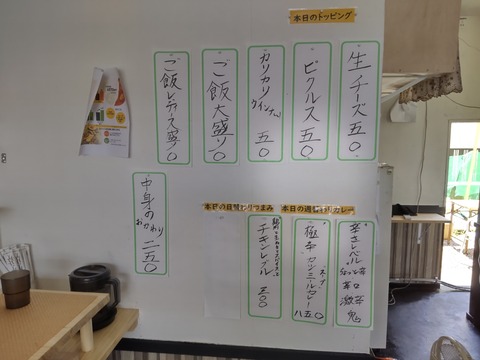 本日のトッピング
生チーズ 五〇
ピクルス 五〇
カリカリ
ウインナー 五〇
ご飯大盛り 〇
ご飯レディース盛り 〇
中身の
おかわり 二五〇
本日の日替わりつまみ
チキンレバル 三〇〇
本日の週替わりカレー
極辛カシミールカレー 八五〇
スープ
辛さレベル
辛口 激辛 鬼